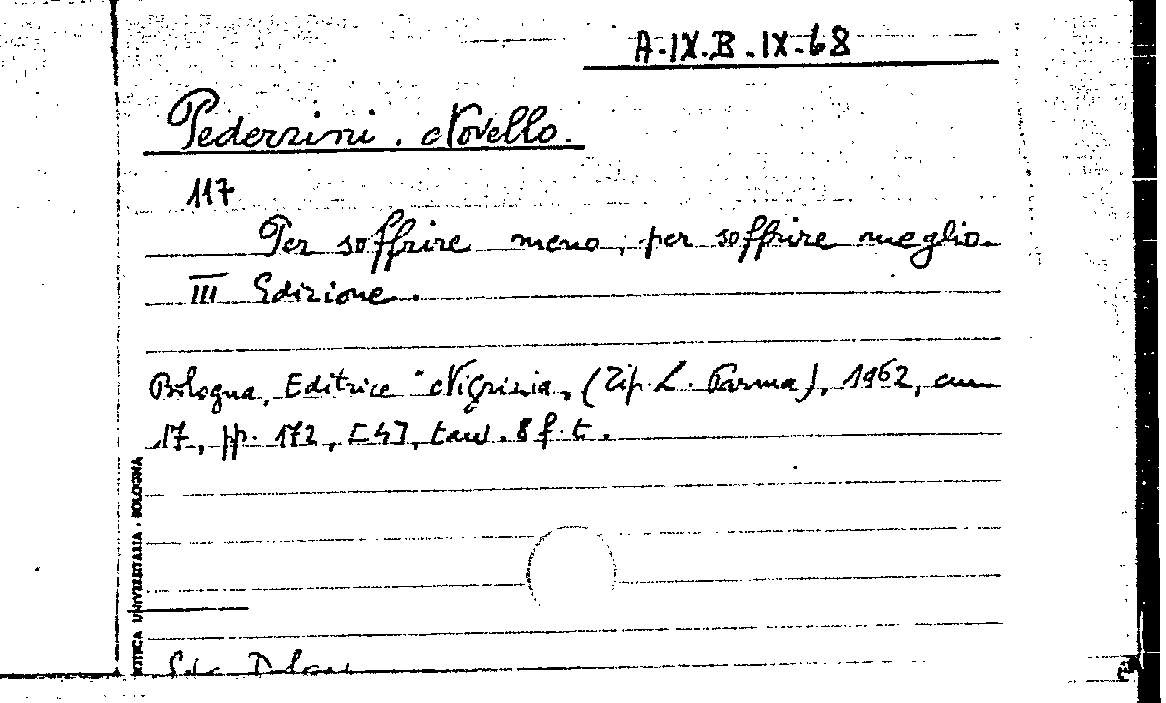 A.IX.B.IX.68
Pederzini. Novello.
117
Per soffrire meno, per soffrire meglio.
III Edizione.
Bologna, Editrice "Nigrizia" (Tip. L. Parma), 1962, cm
17, pp. 172, [4], tav. 8 f. t.
UNIVERSITARIA - BOLOGNA